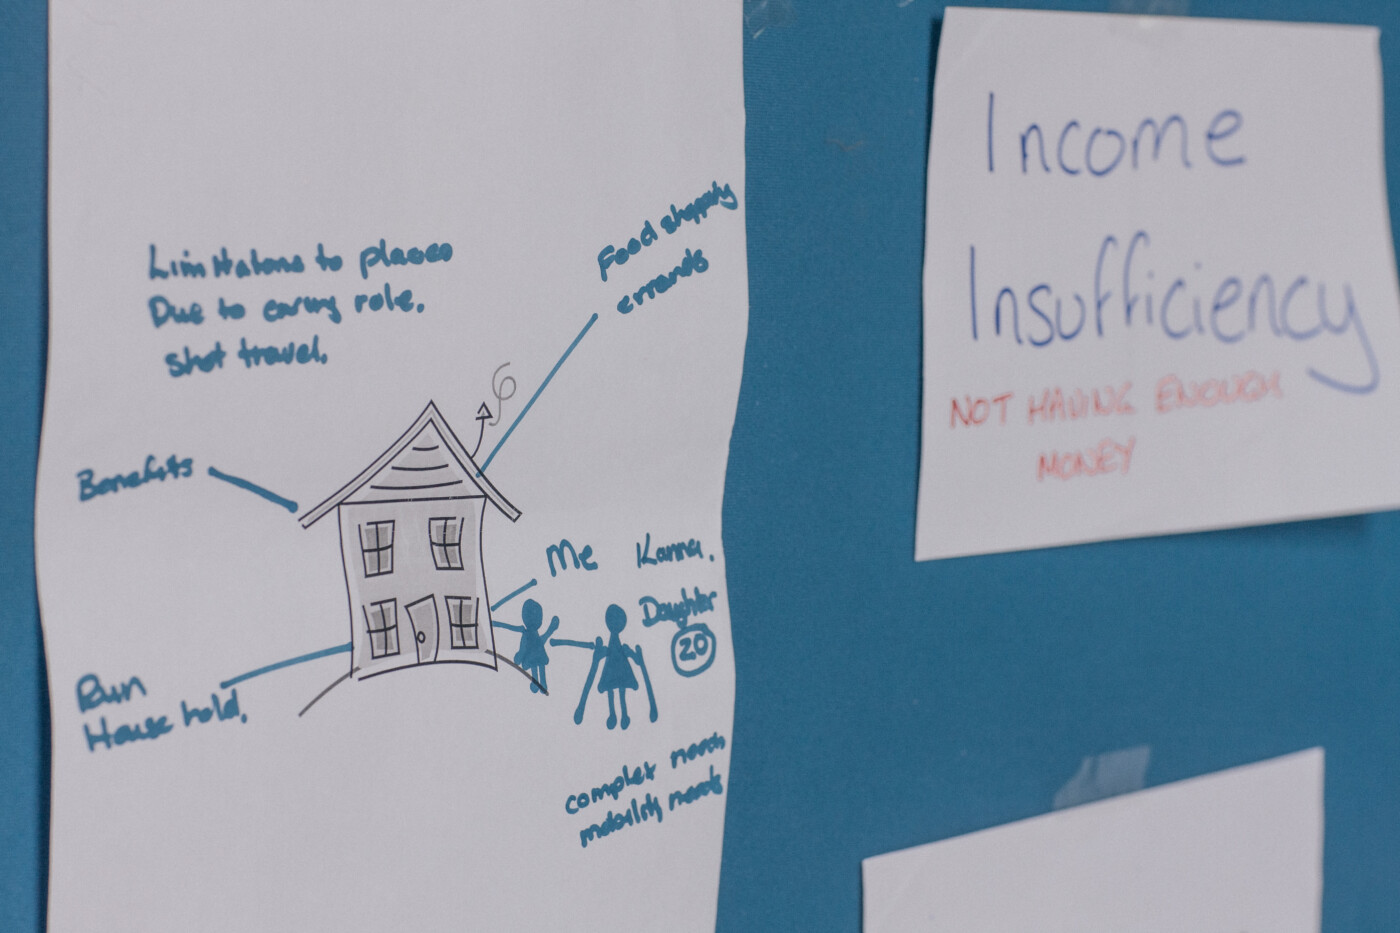 Limitations to places
Due to caring role.
shot travel.
Food shopping
errands
Benefits
Me
Daughter
20
Run
House hold.
complex needs
mobility needs
Income
Insufficiency
NOT HAVING ENOUGH
MONEY